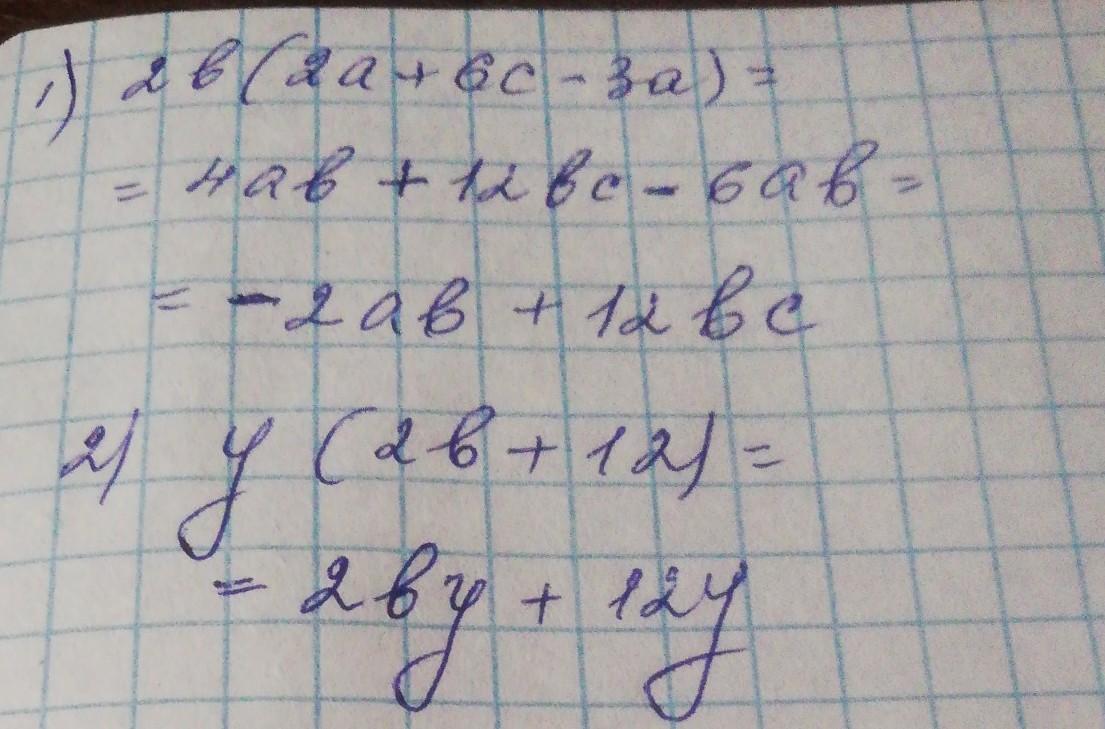 1) 2b(2a + 6c - 3a) =
= 4ab + 12bc - 6ab =
= -2ab + 12bc
2) y (2b + 12) =
= 2by + 12y